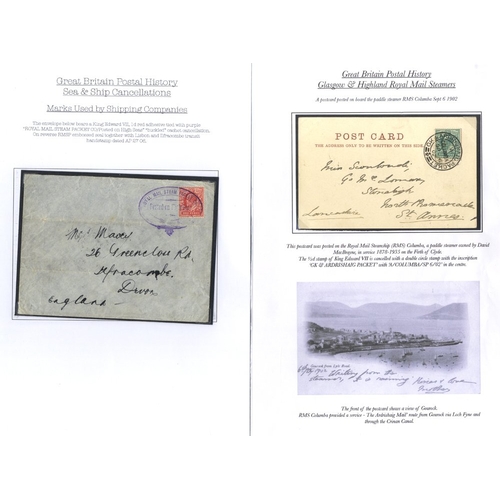 Great Britain Postal History
Sea & Ship Cancellations
Marks Used by Shipping Companies
The envelope below bears a King Edward VII, 1d red adhesive tied with purple
"ROYAL MAIL STEAM PACKET/C°/Posted on High Seas" "buckled" carton cancellation.
On reverse RMSP embossed seal together with Lisbon and
transit
ROYAL MAIL STEAM
Mrs Maxey
26 Greenclose Rd,
Ilfracombe,
Devon
England
Great Britain Postal History
Glasgow & Highland Royal Mail Steamers
A postcard posted on board the paddle steamer RMS Columba Sept 6 1902
POST CARD
THE ADDRESS ONLY TO BE WRITTEN ON THIS SIDE.
Miss
Lancashire
St. Annes
This postcard was posted on the Royal Mail Steamship (RMS) Columba, a paddle steamer owned by David
MacBrayne, in service 1878-1935 on the Firth of Clyde.
The ½d stamp of King Edward VII is cancelled with a double circle stamp with the inscription
"GK & ARDRISHAIG PACKET" with "A/COLUMBA/SP 6/02" in the centre.
Gourock from Lyle Road
Writing from the
steamer,
love
The front of the postcard shows a view of Gourock.
RMS Columba provided a service - 'The Ardrishaig Mail' route from Gourock via Loch Fyne and
through the Crinan Canal.